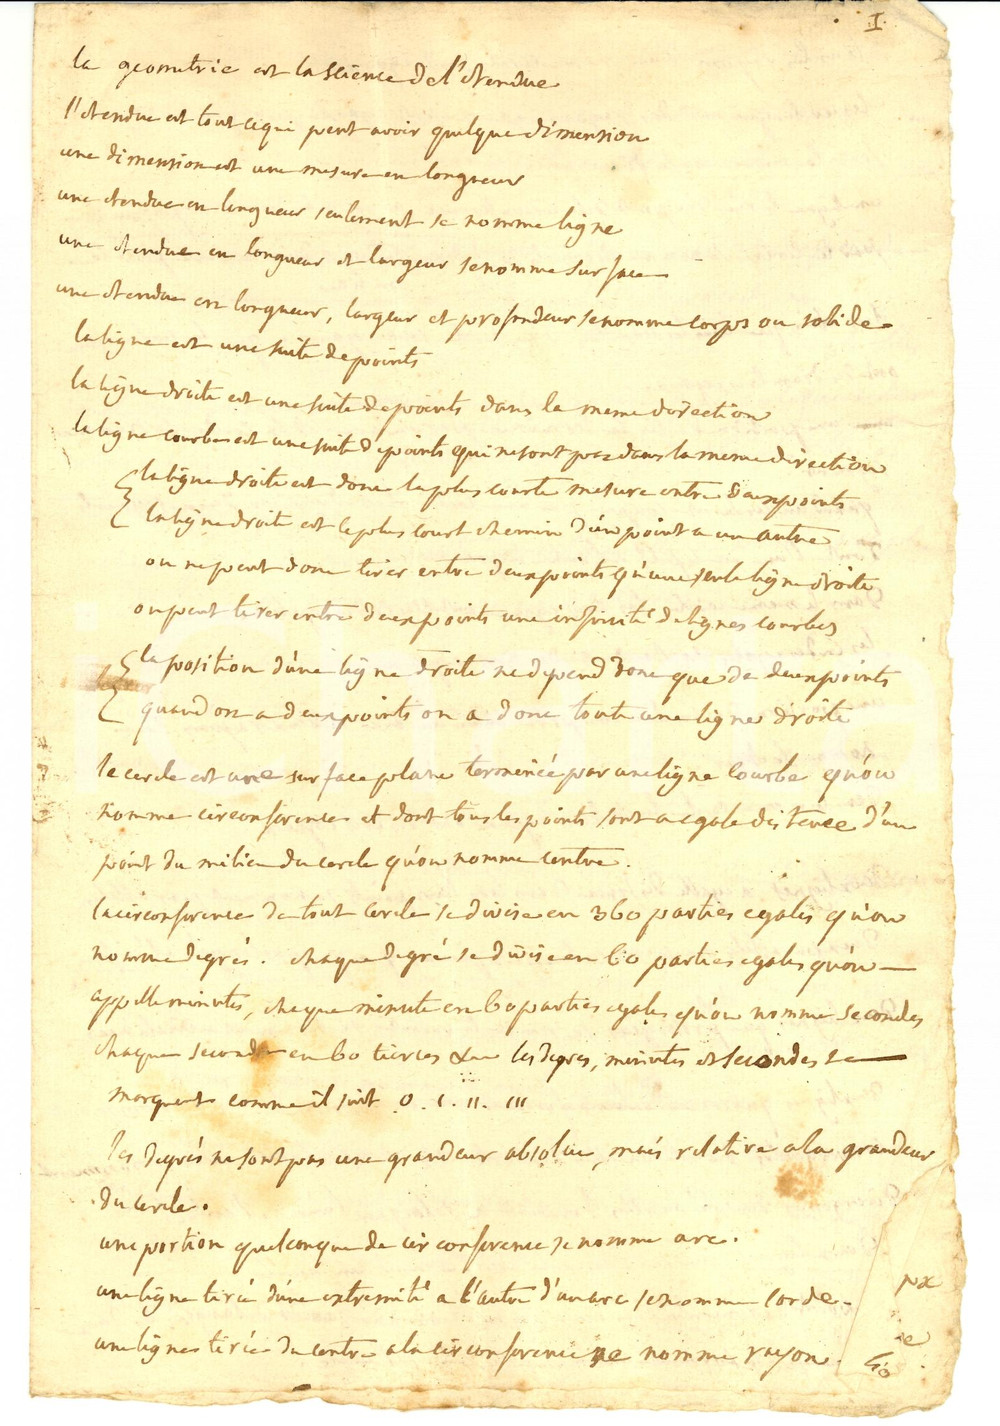 I
la geometrie est la science de l'etendue
l'etendue est tout ce qui peut avoir quelque dimension
une dimension est une mesure en longueur
une etendue en longueur seulement se nomme ligne
une etendue en longueur et largeur se nomme surface
une etendue en longueur, largeur et profondeur se nomme corps ou solide.
la ligne est une suite de points
la ligne droite est une suite de points dans la meme direction
la ligne courbe est une suite de points qui ne sont pas dans la meme direction
la ligne droite est donc la plus courte mesure entre deux points
la ligne droite est le plus court chemin d'un point a un autre
on ne peut donc tirer entre deux points qu'une seule ligne droite
on peut tirer entre deux points une infinité de lignes courbes
la position d'une ligne droite ne depend donc que de deux points
quand on a deux points on a donc toute une ligne droite
le cercle est une surface plane terminée par une ligne courbe qu'on
nomme circonference et dont tous les points sont a egale distence d'un
point du milieu du cercle qu'on nomme centre.
la circonference de tout cercle se divise en 360 parties egales qu'on
nomme degrés. chaque degré se divise en 60 parties egales qu'on
appelle minutes, chaque minute en 60 parties egales qu'on nomme secondes
chaque seconde en 60 tierces &c les degres, minutes et secondes se
marquent comme il suit 0 . I . II . III
les degrés ne sont pas une grandeur absolue, mais relative a la grandeur
du cercle.
une portion quelconque de circonference se nomme arc.
une ligne tirée d'une extremité a l'autre d'un arc se nomme corde.
une ligne tirée du centre a la circonference se nomme rayon.